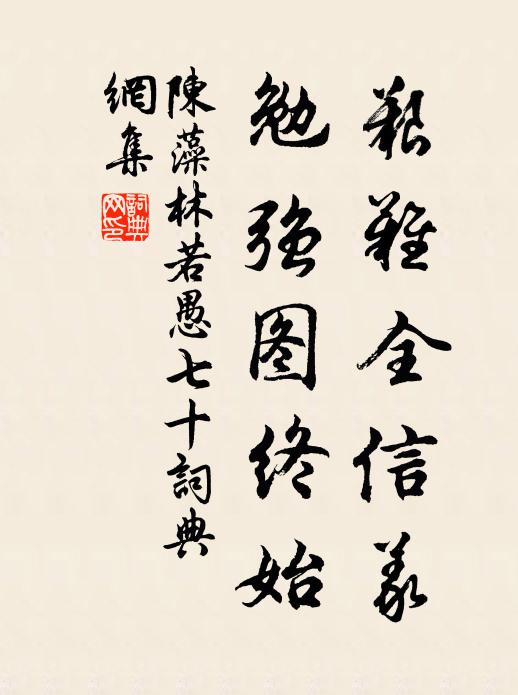 艱難全信義
勉強图終始
陳藻林若愚七十詞典
網集
詞典
网印